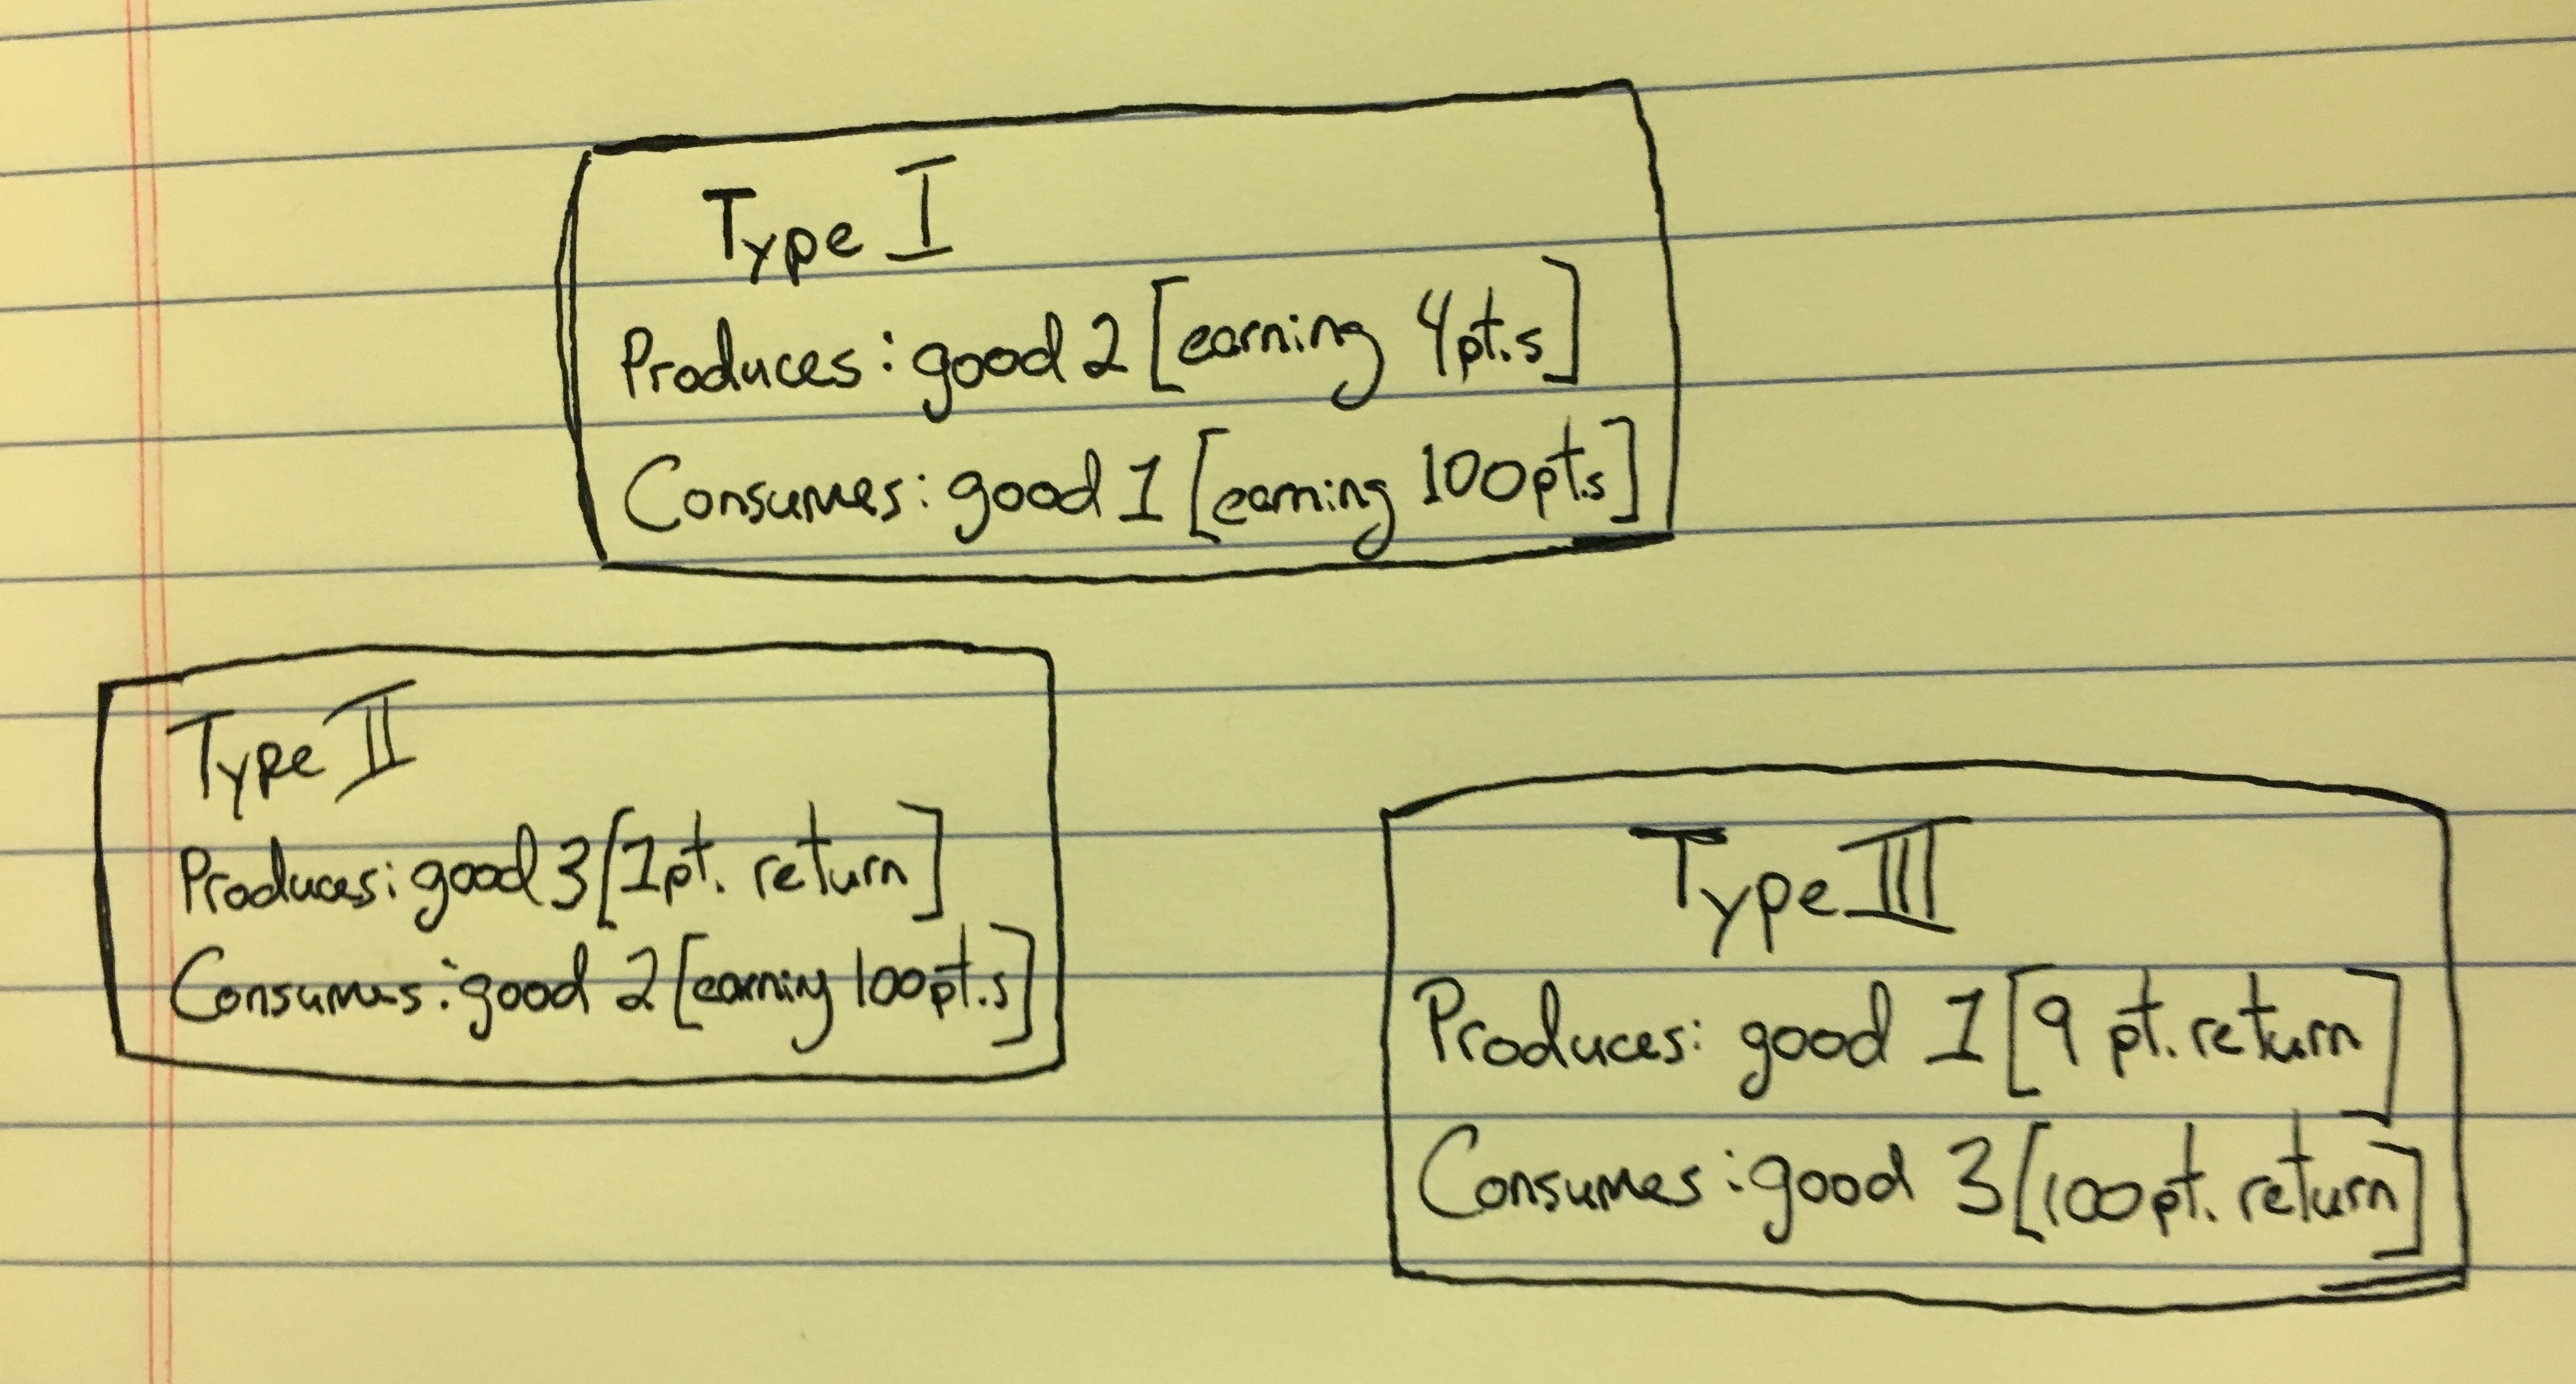 Type I
Produces: good 2 [earning 4pt.s]
Consumes: good 1 [earning 100pt.s]
Type II
Produces: good 3 [1pt. return]
Consumes: good 2 [earning 100pt.s]
Type III
Produces: good 1 [9 pt. return]
Consumes: good 3 [100pt. return]